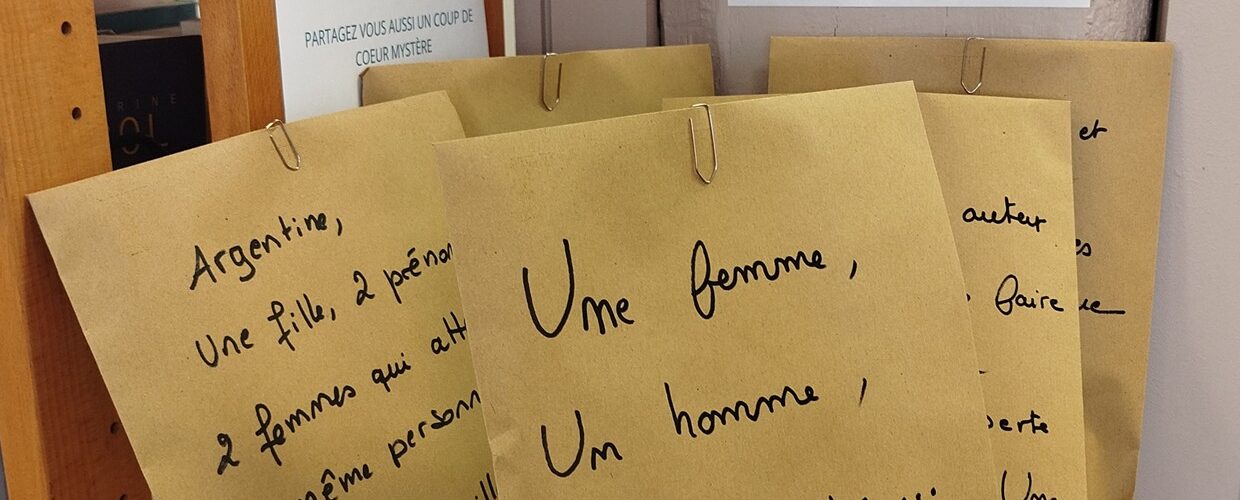 PARTAGEZ VOUS AUSSI UN COUP DE
COEUR MYSTÈRE
Argentine,
Une fille, 2 prénom
2 femmes qui att
même personn
Une femme,
Un homme,
et
auteur
es
faire
erte
Une